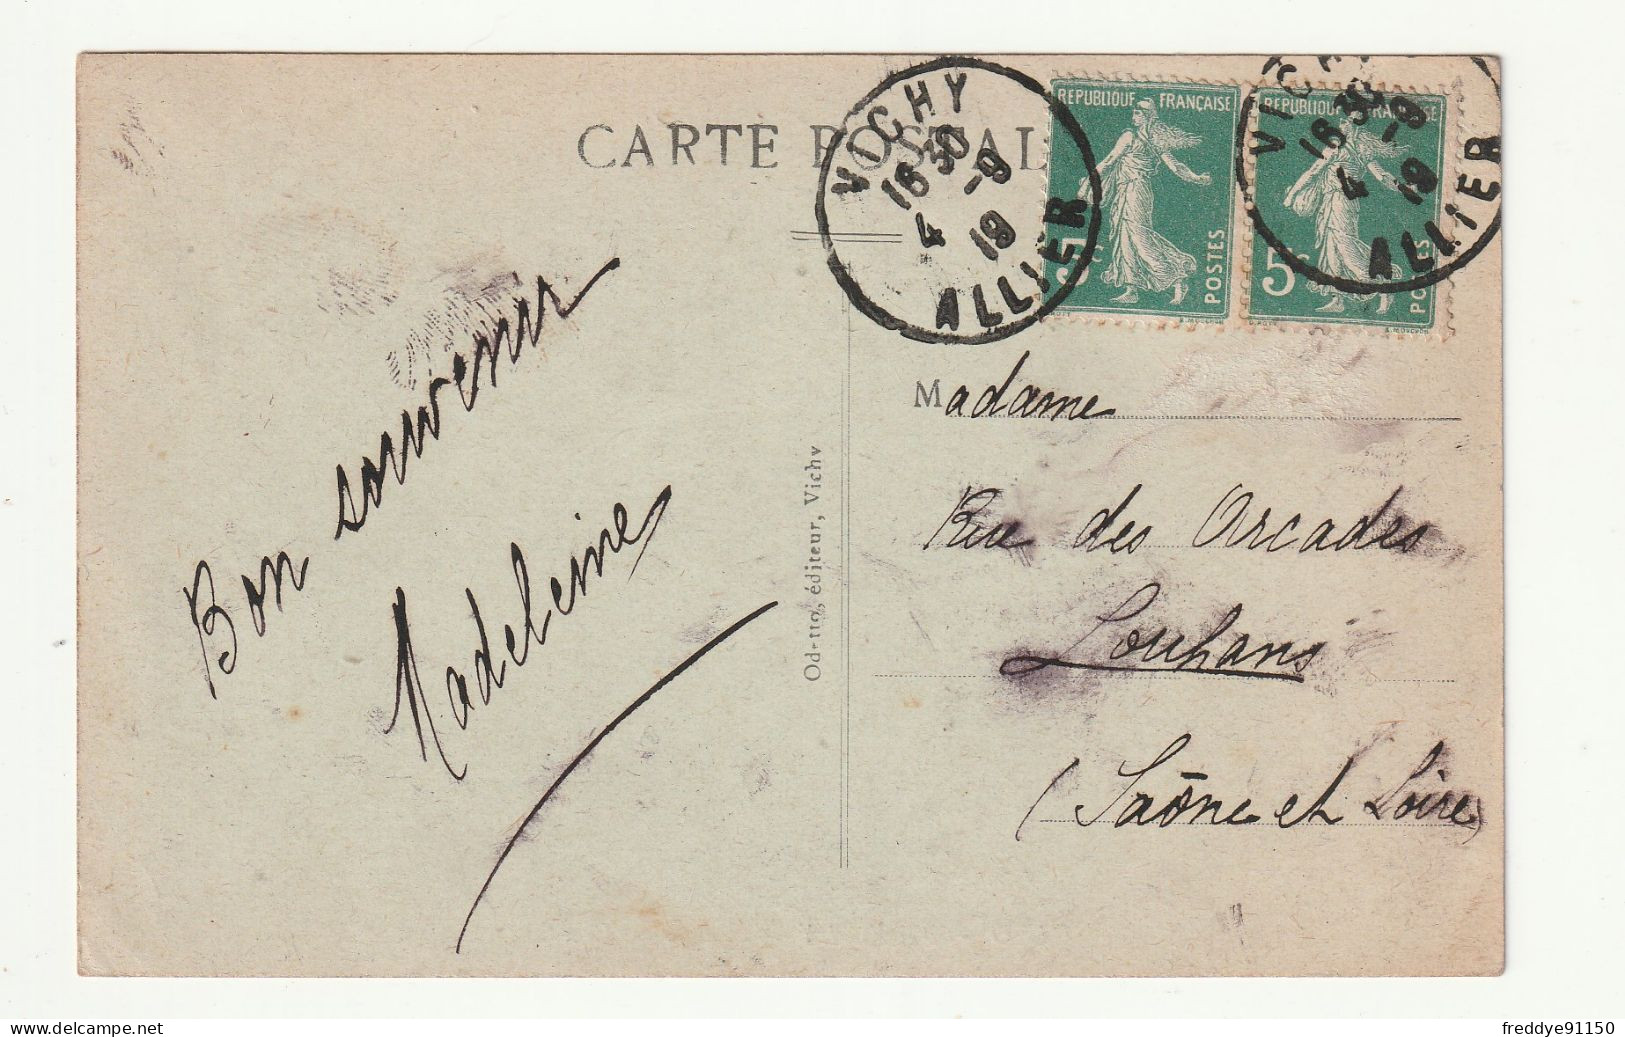 CARTE POSTAL
VICHY
16 30
4 -9
19
ALLIER
REPUBLIQUE FRANÇAISE
5c
POSTES
REPUBLIQUE FRANÇAISE
5c
POSTES
16 30
4 -9
19
ALLIER
Bon souvenir
Madeleine
Madame
Rue des Arcades
Louhans
(Saône et Loire)
delcampe.net
freddye91150